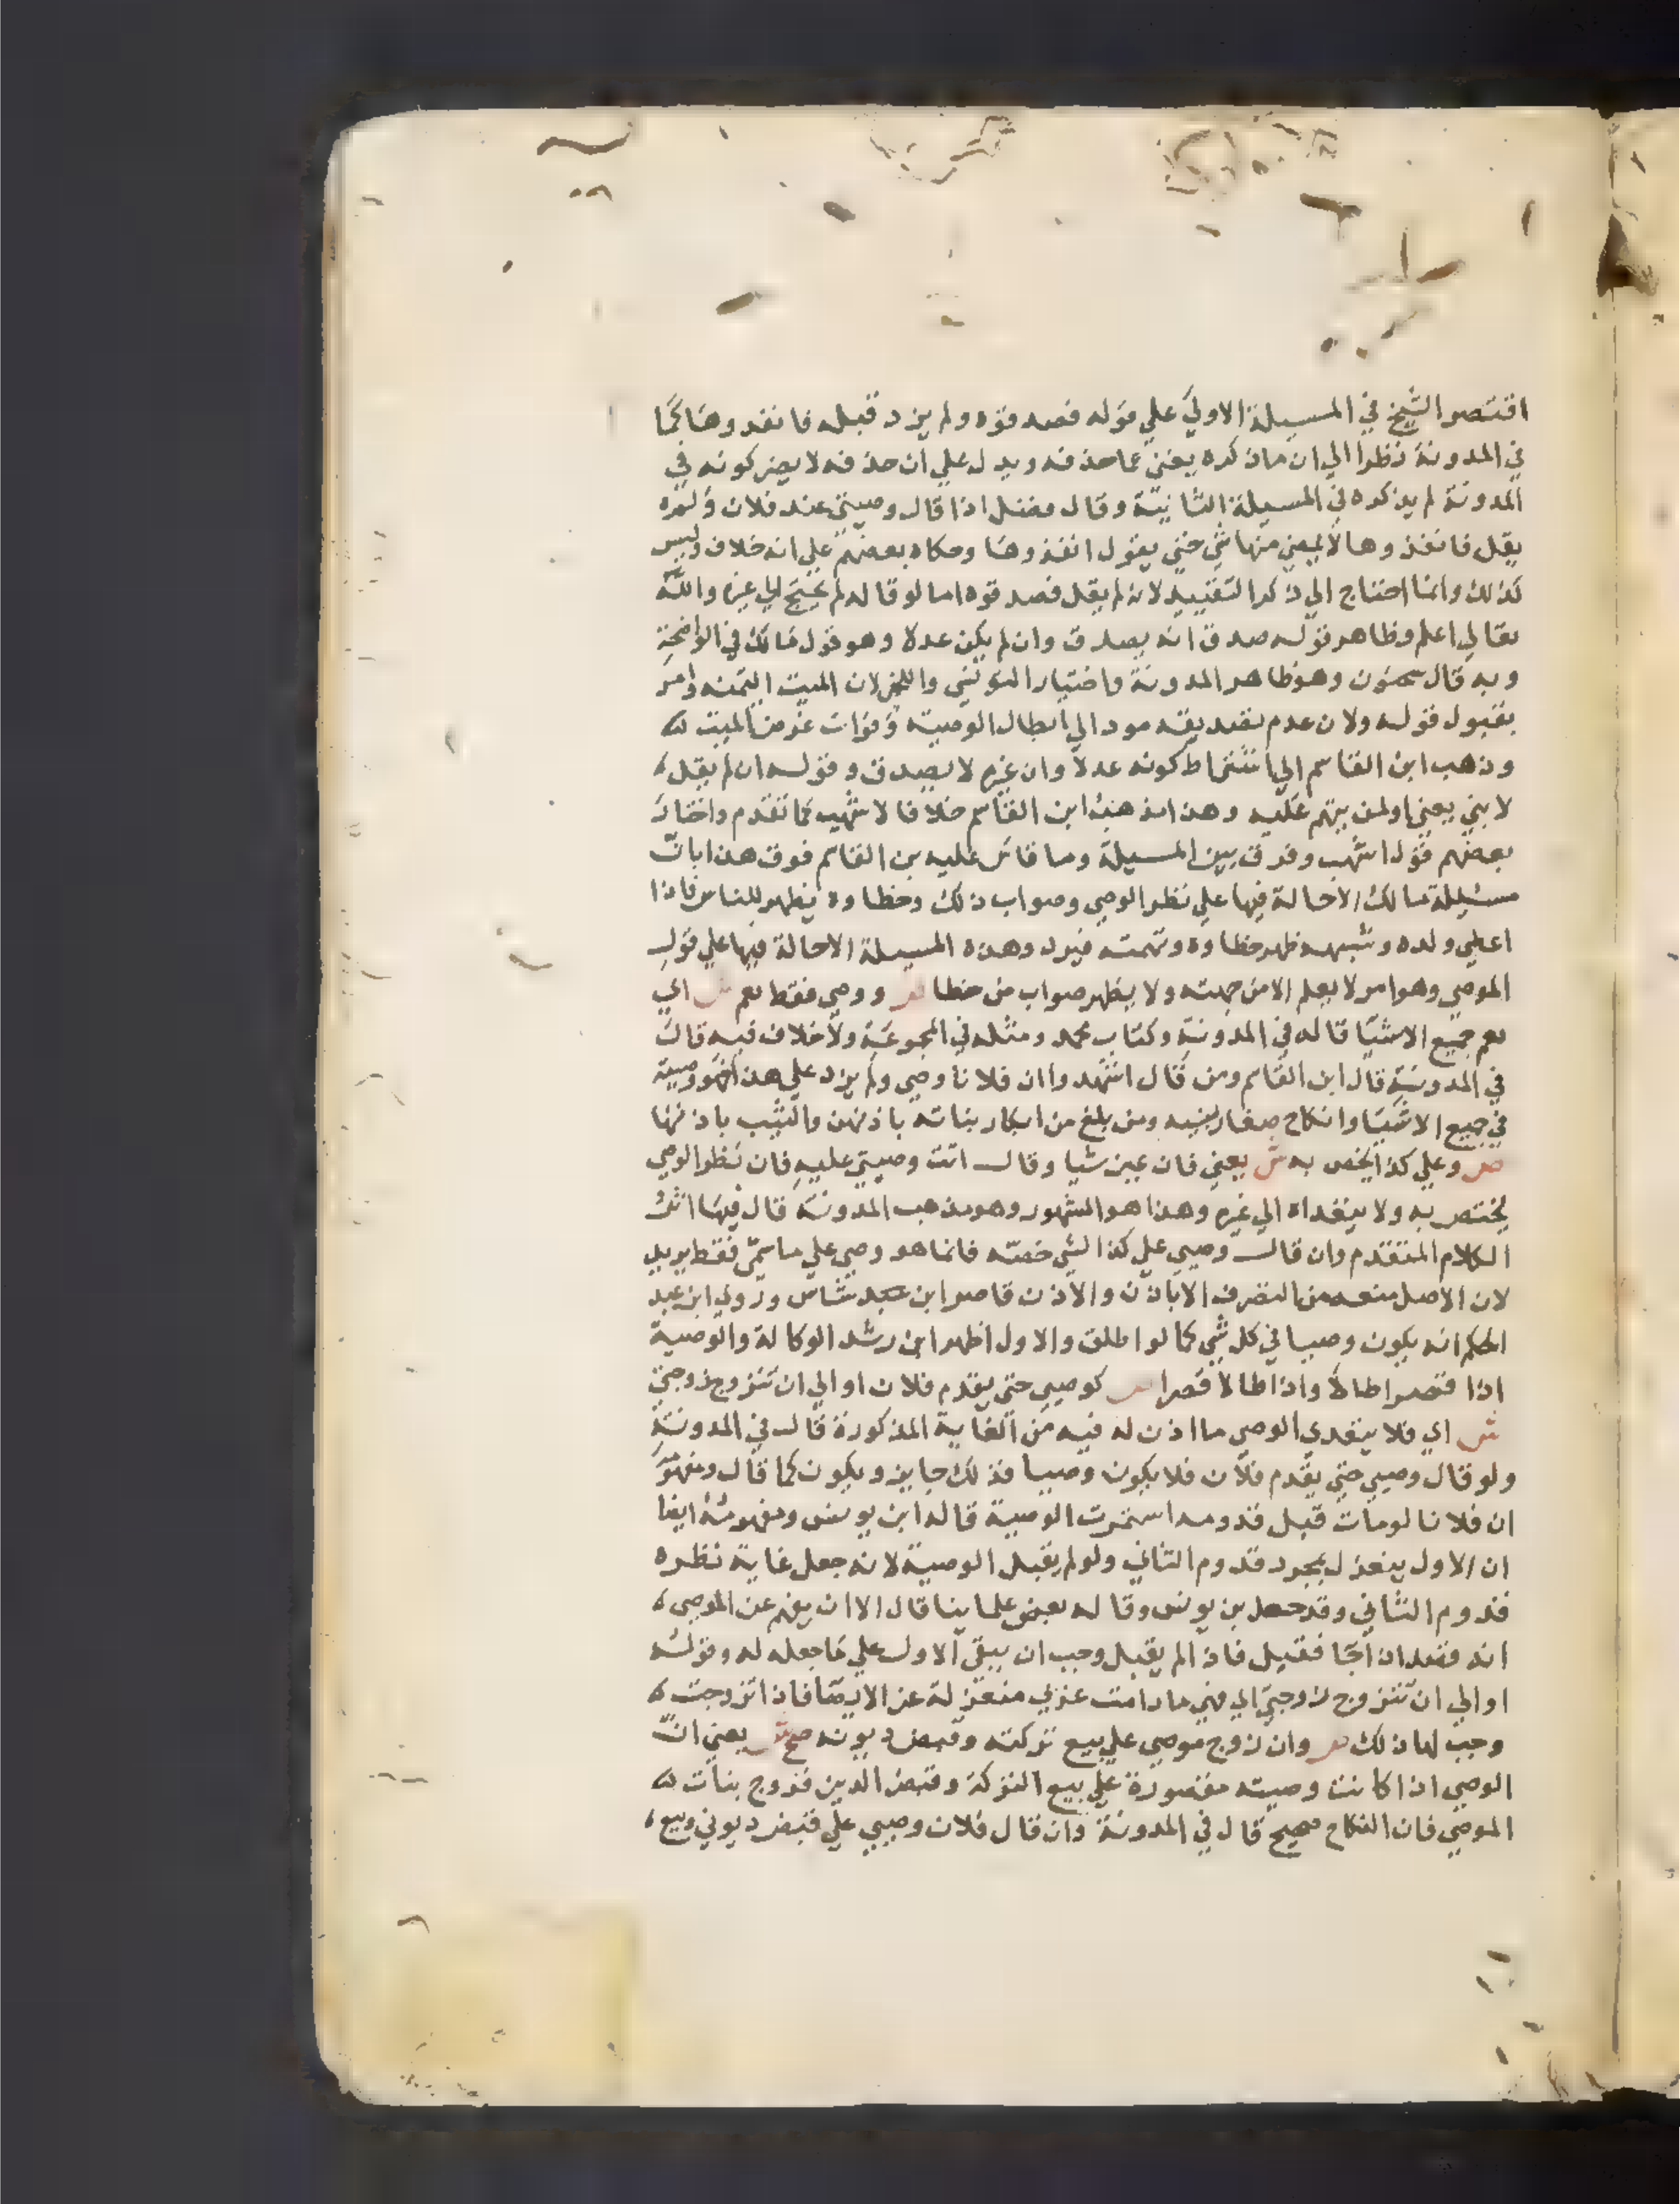 اقتصر الشيخ في المسيلة الاولي علي قوله فصدقوه ولم يزد قبله فانفدوها كما
في المدونة نظرا الي ان ما ذكره يغني عما حذفه ويدل علي ان حذفه لا يضر كونه في
المدونة لم يذكره في المسيلة الثانية وقال مفضل اذا قال وصيتي عند فلان ولم
يقل فانفذوها لا يمضي منها شي حتي يقول انفذوها وحكاه بعضهم علي انه خلاف وليس
كذلك وانما احتاج الي ذكر التقييد لانه لم يقل فصدقوه اما لو قاله لم يحتج الي غيره والله
تعالي اعلم وظاهر قوله صدق انه يصدق وان لم يكن عدلا وهو قول مالك في الواضحة
وبه قال سحنون وهو ظاهر المدونة واختيار التونسي واللخمي لان الميت ايتمنه وامر
بقبول قوله ولان عدم تصديقه مود الي ابطال الوصية وفوات غرض الميت
وذهب ابن القاسم الي اشتراط كونه عدلا وان غيره لا يصدق وقوله ان لم يقل
لابني يعني او لمن يتهم عليه وهذا مذهب ابن القاسم خلافا لاشهب كما تقدم واختار
بعضهم قول اشهب وفرق بين المسيلة وما قاس عليه بن القاسم فوق هذا بان
مسئيلة مالك الاحالة فيها علي نظر الوصي وصواب ذلك وخطاوه يظهر للناس فاذا
اعطي ولده وشبهه ظهر خطاوه وتهمته فيرد وهذه المسيلة الاحالة فيها علي قول
الموصي وهو امر لا يعلم الا من جهته ولا يظهر صواب من خطا ص ووصي فقط يعم ش اي
يعم جميع الاشيا قاله في المدونة وكتاب محمد ومثله في المجموعة ولا خلاف فيه قال
في المدونة قال ابن القاسم ومن قال اشهدوا ان فلانا وصي ولم يزد علي هذا فهو وصيته
في جميع الاشيا وانكاح صغار بنيه ومن بلغ من ابكار بناته باذنهن والثيب باذنها
ص وعلي كذا يخص به ش يعني فان عين شيا وقال انت وصيتي عليه فان نظر الوصي
يختص به ولا يتعداه الي غيره وهذا هو المشهور وهو مذهب المدونة قال فيها اثر
الكلام المتقدم وان قال وصيي علي كذا الشي خصته فانما هو وصي علي ما سمي فقط يريد
لان الاصل منعه من التصرف الا باذن والاذن قاصر ابن عبد شاس وروي ابن عبد
الحكم انه يكون وصيا في كل شي كما لو اطلق والاول اظهر ابن رشد الوكالة والوصية
اذا قصرا طالا واذا طالا قصرا ص كوصيي حتي يقدم فلان او الي ان تتزوج زوجتي
ش اي فلا يتعدي الوصي ما اذن له فيه من الغاية المذكورة قال في المدونة
ولو قال وصيي حتي يقدم فلان فلا يكون وصيا فذلك جايز ويكون كما قال ومفهومه
ان فلانا لو مات قبل قدومه استمرت الوصية قاله ابن يونس ومفهومه ايضا
ان الاول ينعزل بمجرد قدوم الثاني ولو لم يقبل الوصية لانه جعل غاية نظره
قدوم الثاني وقد حصله بن يونس وقاله بعض علماينا قال الا ان يفهم عن الموصي
انه قصد ان جا فقبل فاذا لم يقبل وجب ان يبقي الاول علي ما جعله له وقوله
او الي ان تتزوج زوجتي اي فهي ما دامت عزبي منعزلة عن الازواج فاذا تزوجت
وجب لها ذلك ص وان زوج موصي علي بيع تركته وقبض ديونه صح ش يعني ان
الوصي اذا كانت وصيته مقصورة علي بيع التركة وقبض الدين فزوج بنات
الموصي فان النكاح صحيح قال في المدونة وان قال فلان وصيي علي قبض ديوني وبيع